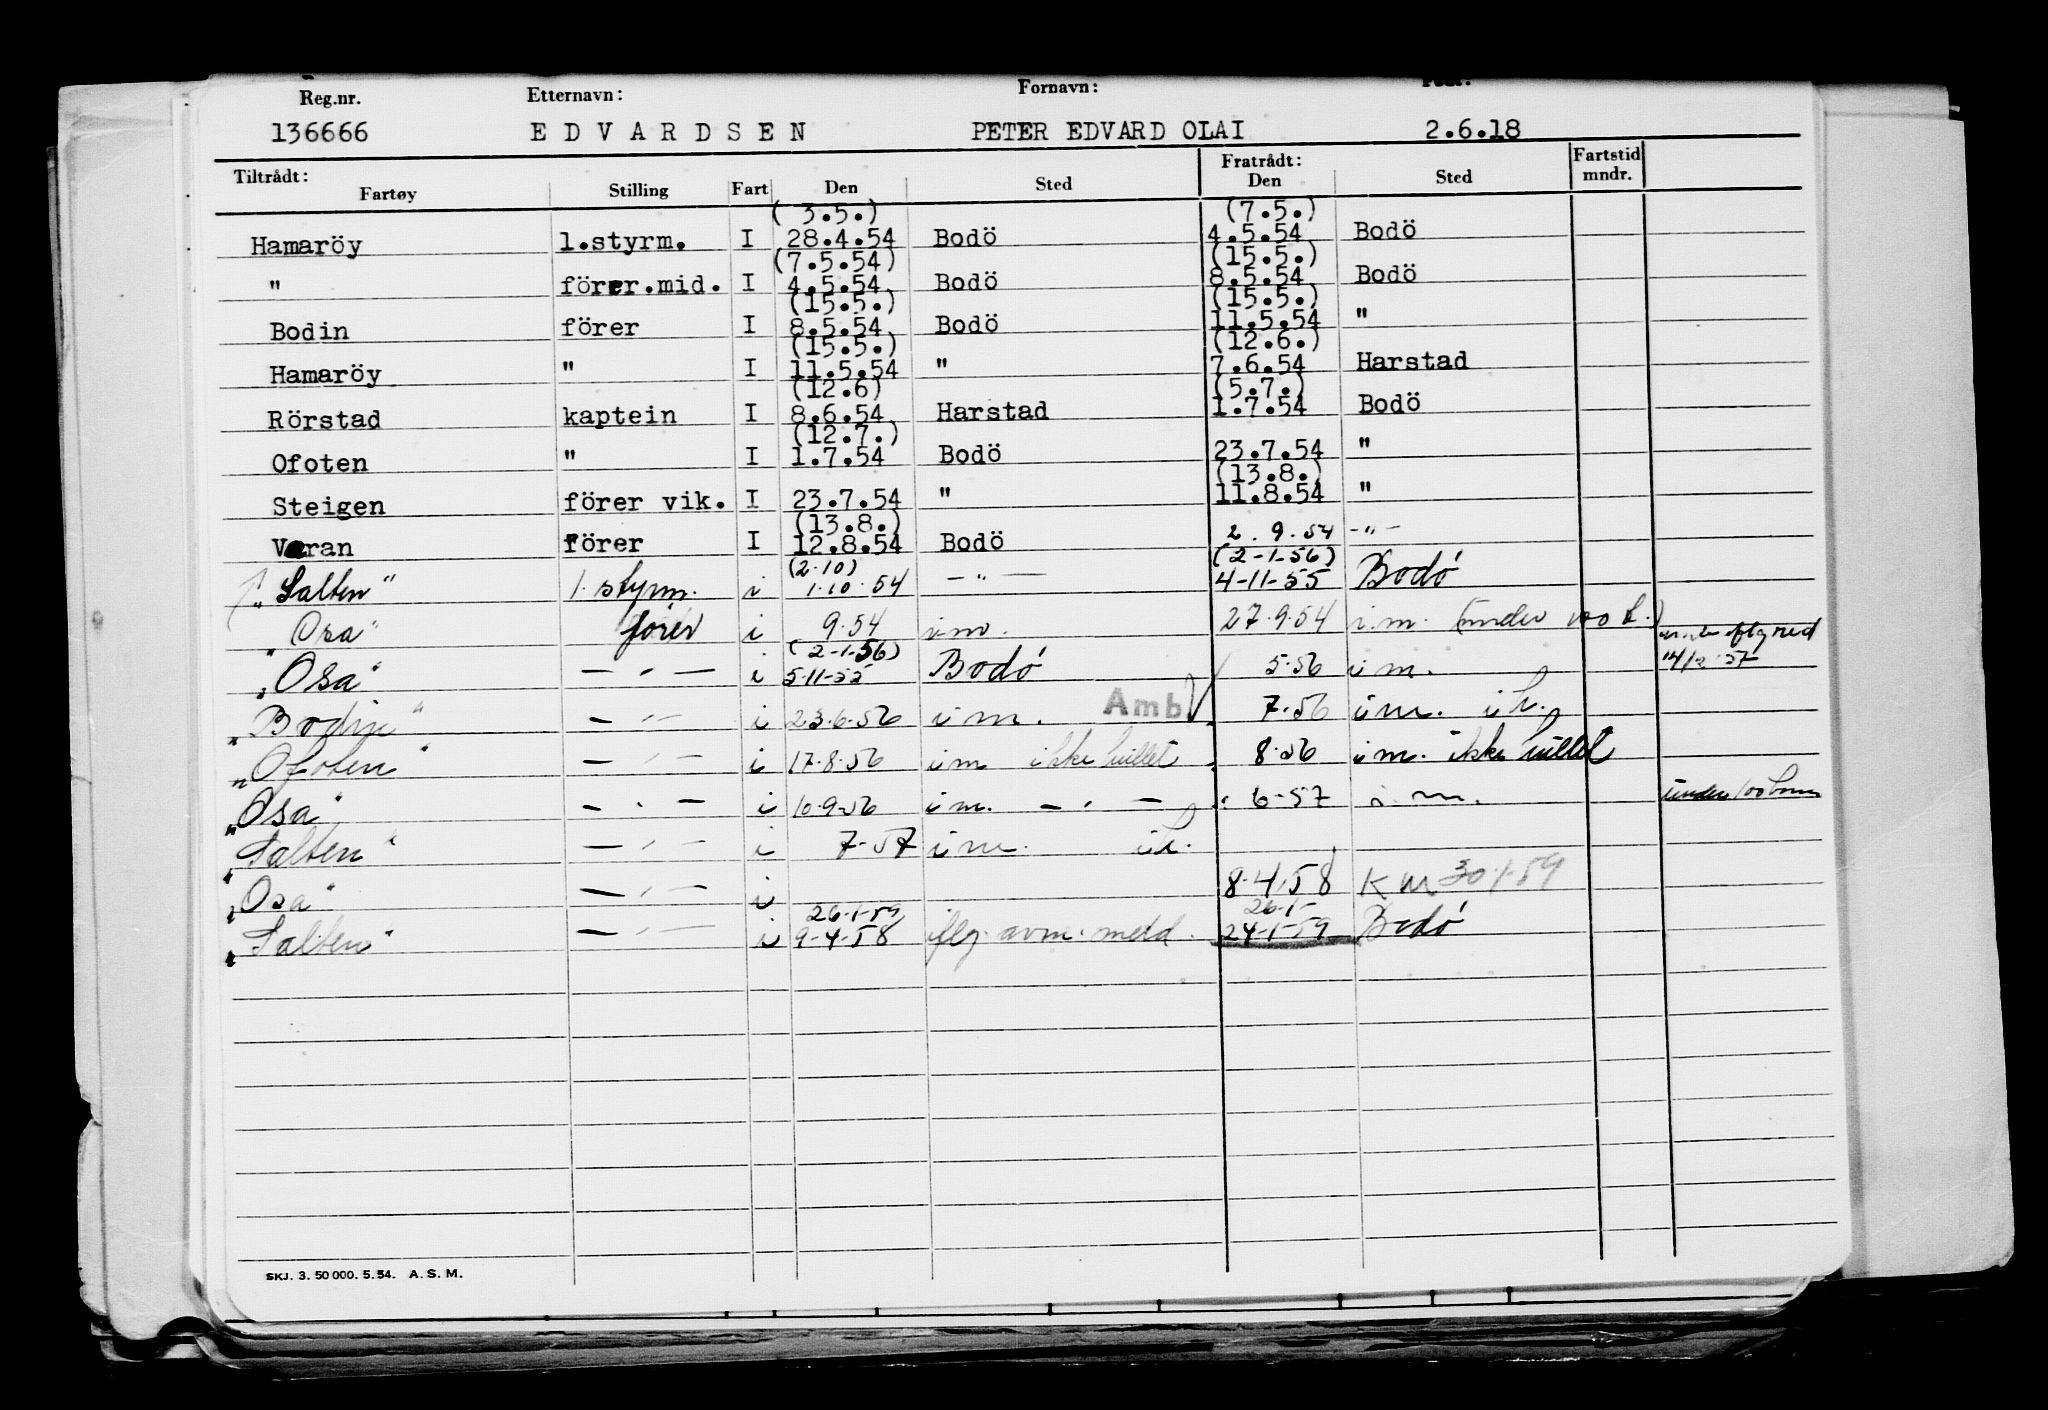 Reg.nr. Etternavn: Fornavn:
136666 EDVARDSEN PETER EDVARD OLAI 2.6.18
Tiltrådt: Fratrådt: Fartstid
Fartøy Stilling Fart Den Sted Den Sted mndr.
(3.5.) (7.5.)
Hamaröy 1.styrm. I 28.4.54 Bodö 4.5.54 Bodö
(7.5.54) (15.5.)
" förer.mid. I 4.5.54 Bodö 8.5.54 Bodö
(15.5.) (15.5.)
Bodin förer I 8.5.54 Bodö 11.5.54 "
(15.5.) (12.6.)
Hamaröy " I 11.5.54 " 7.6.54 Harstad
(12.6) (5.7.)
Rörstad kaptein I 8.6.54 Harstad 1.7.54 Bodö
(12.7.)
Ofoten " I 1.7.54 Bodö 23.7.54 "
(13.8.)
Steigen förer vik. I 23.7.54 " 11.8.54 "
(13.8.)
Varan förer I 12.8.54 Bodö 2.9.54 -"-
(2.10) (2-1-56)
"Salten" 1. styrm. i 1.10.54 -"- 4-11-55 Bodö
"Osa" förer i 9.54 i.m. 27.9.54 i.m. (under 100 b.)
(2-1-56)
"Osa" -"- i 5-11-55 Bodö 5.56 i m.
"Bodin" -"- i 23.6.56 i m. Amb 7.56 i m.
"Ofoten" -"- i 17.8.56 i m ikke hillet 8.56 i m. ikke hillet
"Osa" -"- i 10.9.56 i m. -"- 6-57 i.m. under 100 br
"Salten" -"- i 7-57 i m.
"Osa" -"- i 8.4.58 K M 30-1-59
26-1-59 26-1-
"Salten" -"- i 9-4-58 iflg. avm. meld. 24-1-59 Bodö
SKJ. 3. 50 000. 5.54. A. S. M.